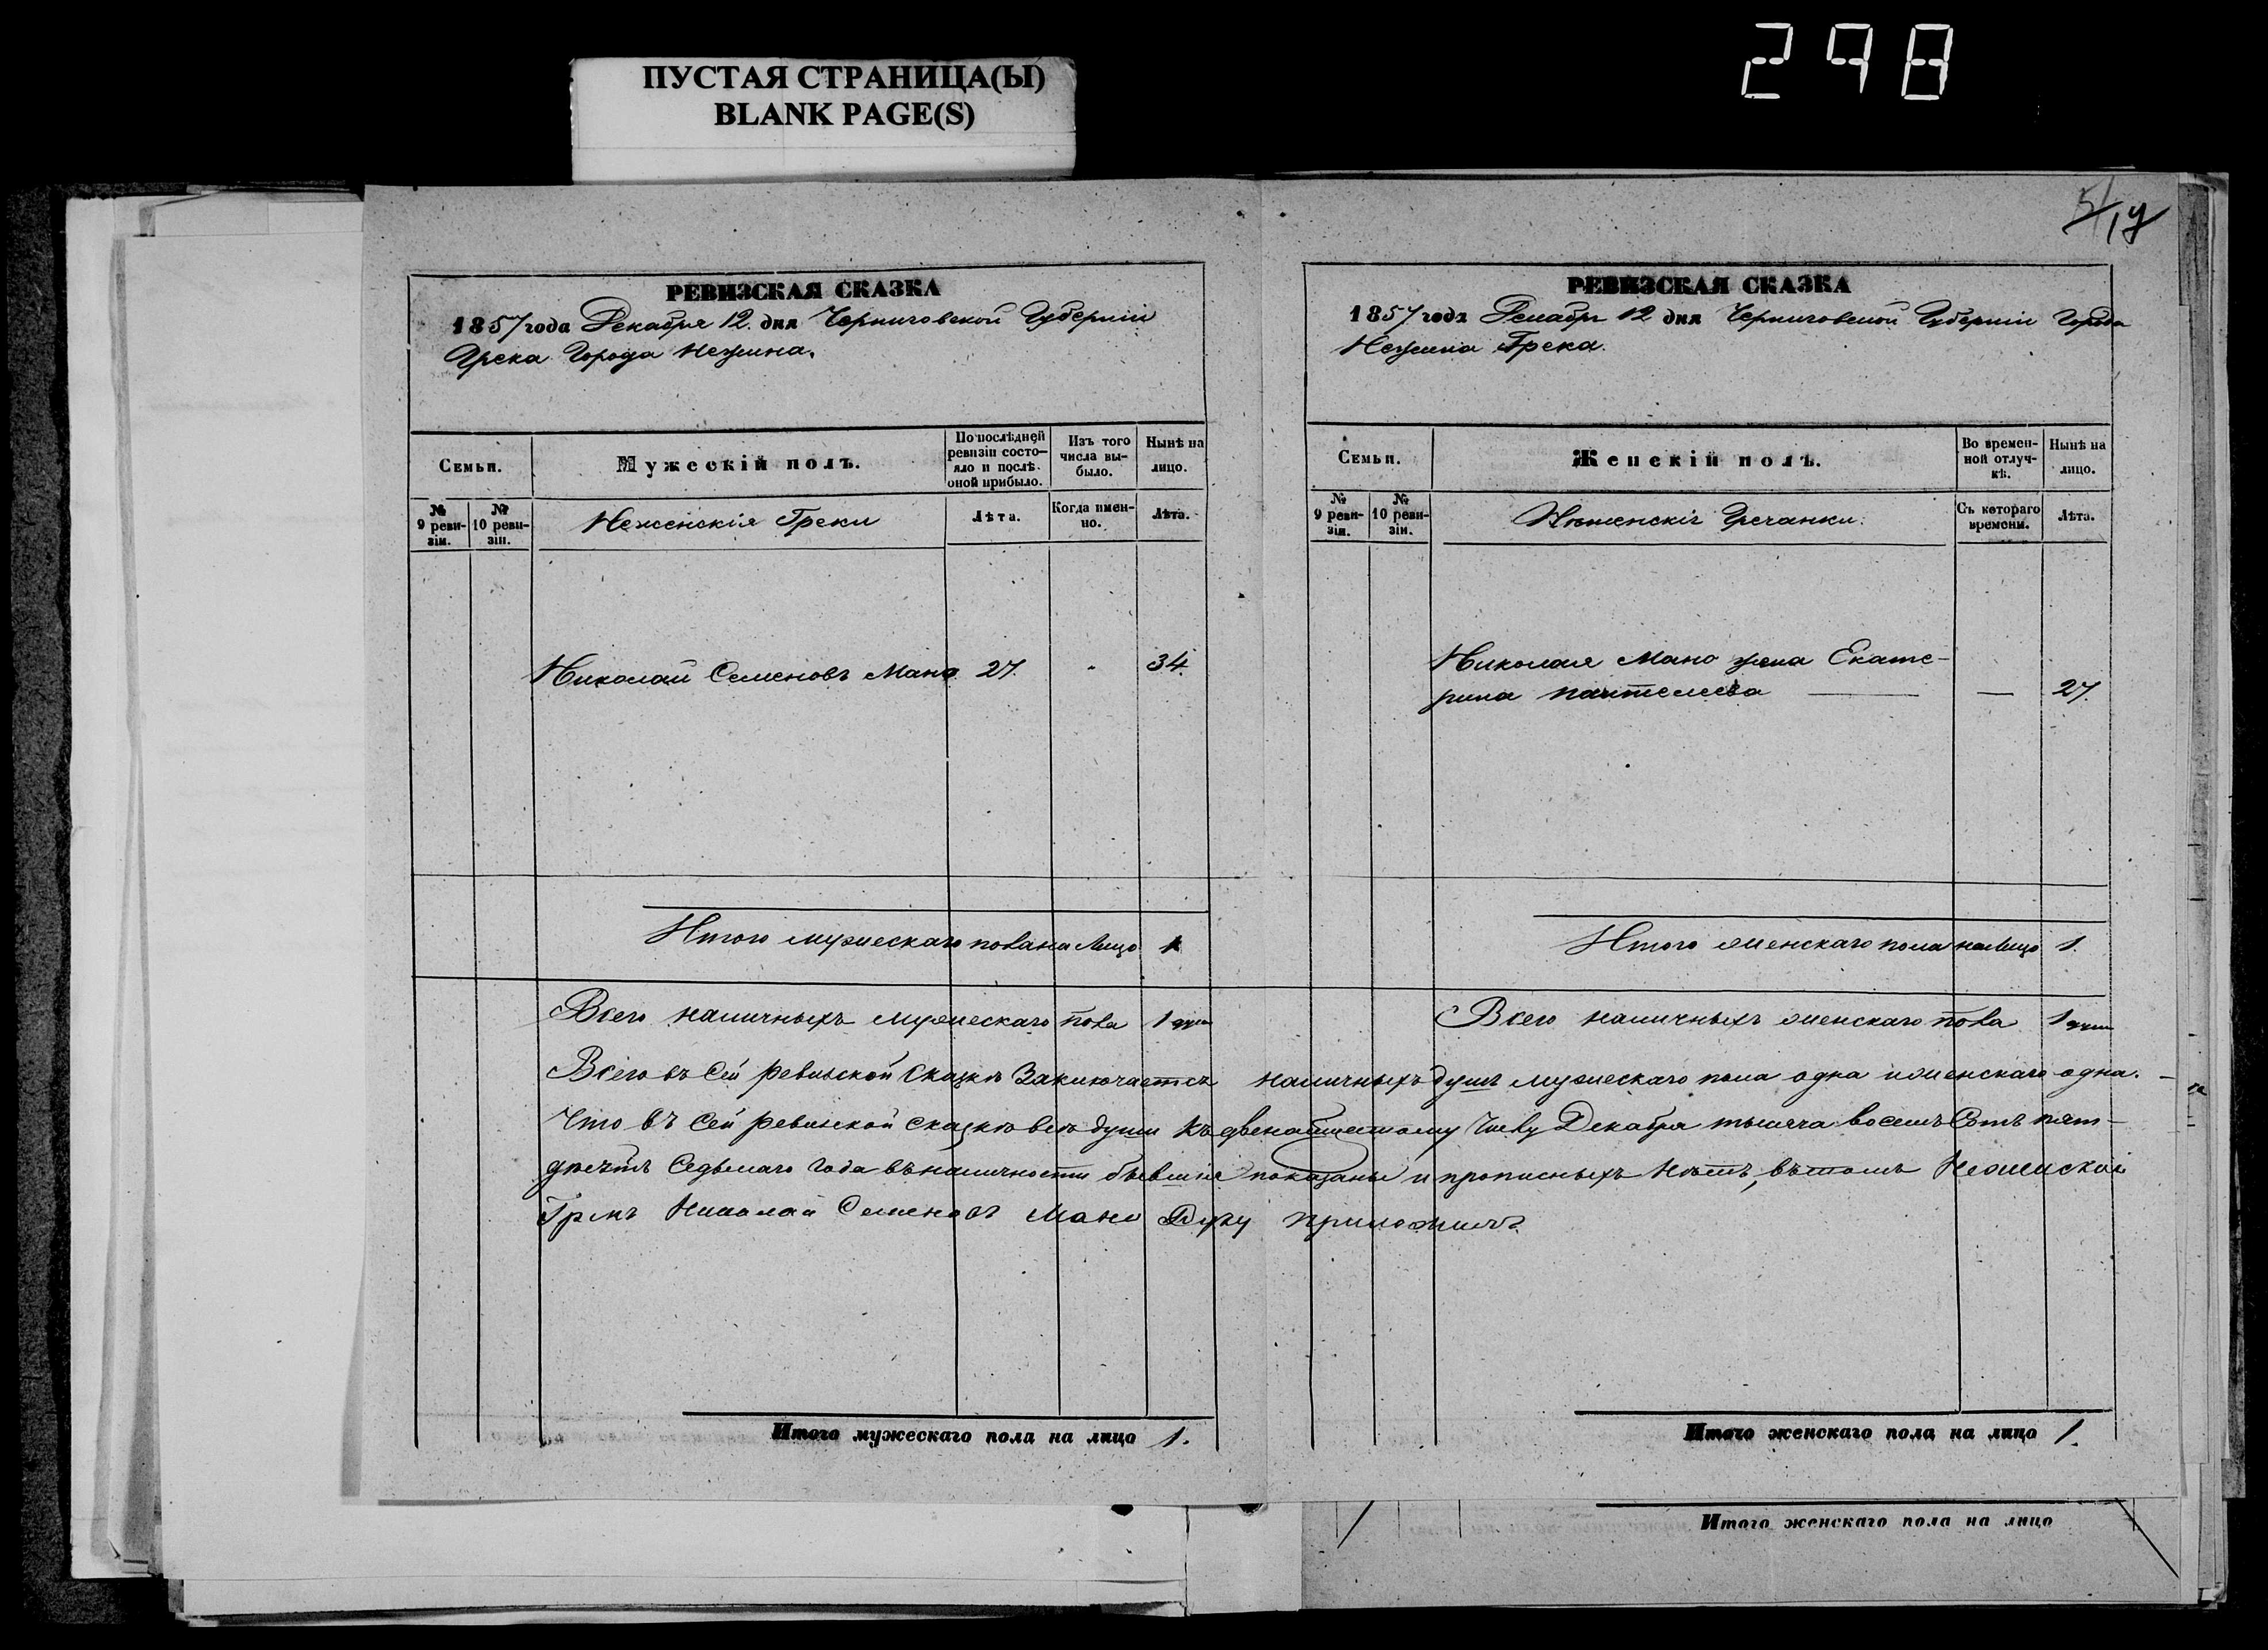 298
ПУСТАЯ СТРАНИЦА(Ы)
BLANK PAGE(S)
РЕВИЗСКАЯ СКАЗКА
1857 года Декабря 12. дня Черниговской Губерніи
Грека Города Нежина.
Семьи.
Мужескій полъ.
По послѣдней
ревизіи состо-
яло и послѣ
оной прибыло.
Изъ того
числа вы-
было.
Нынѣ на
лицо.
№
9 реви-
зіи.
№
10 реви-
зіи.
Неженскія Греки
Лѣта.
Когда имен-
но.
Лѣта.
Николай Семеновъ Мано 27. 34.
Итого мужескаго пола на Лицо 1
Всего наличныхъ мужескаго пола 1 душа
РЕВИЗСКАЯ СКАЗКА
1857 года Декабря 12 дня Черниговской Губерніи Города
Нежина Грека.
Семьи.
Женскій полъ.
Во времен-
ной отлуч-
кѣ.
Нынѣ на
лицо.
№
9 реви-
зіи.
№
10 реви-
зіи.
Неженскія Гречанки.
Съ котораго
времени.
Лѣта.
Николая Мано жена Екате-
рина — — 27.
Итого женскаго пола на Лицо 1.
Всего наличныхъ женскаго пола 1 душа
Всего въ Сей ревизской Сказкѣ Заключается наличныхъ душъ мужескаго пола одна и женскаго одна.
Что въ Сей ревизской сказкѣ всѣ души къ двенатцатому Числу Декабря тысяча восемъ Сотъ пят-
десятъ Седьмаго Года въ наличности бывшіе показаны и прописныхъ нѣтъ, въ томъ Неженской
Грекъ Николай Семеновъ Мано Руку приложилъ
Итого мужескаго пола на лицо 1.
Итого женскаго пола на лицо 1.
Итого женскаго пола на лицо